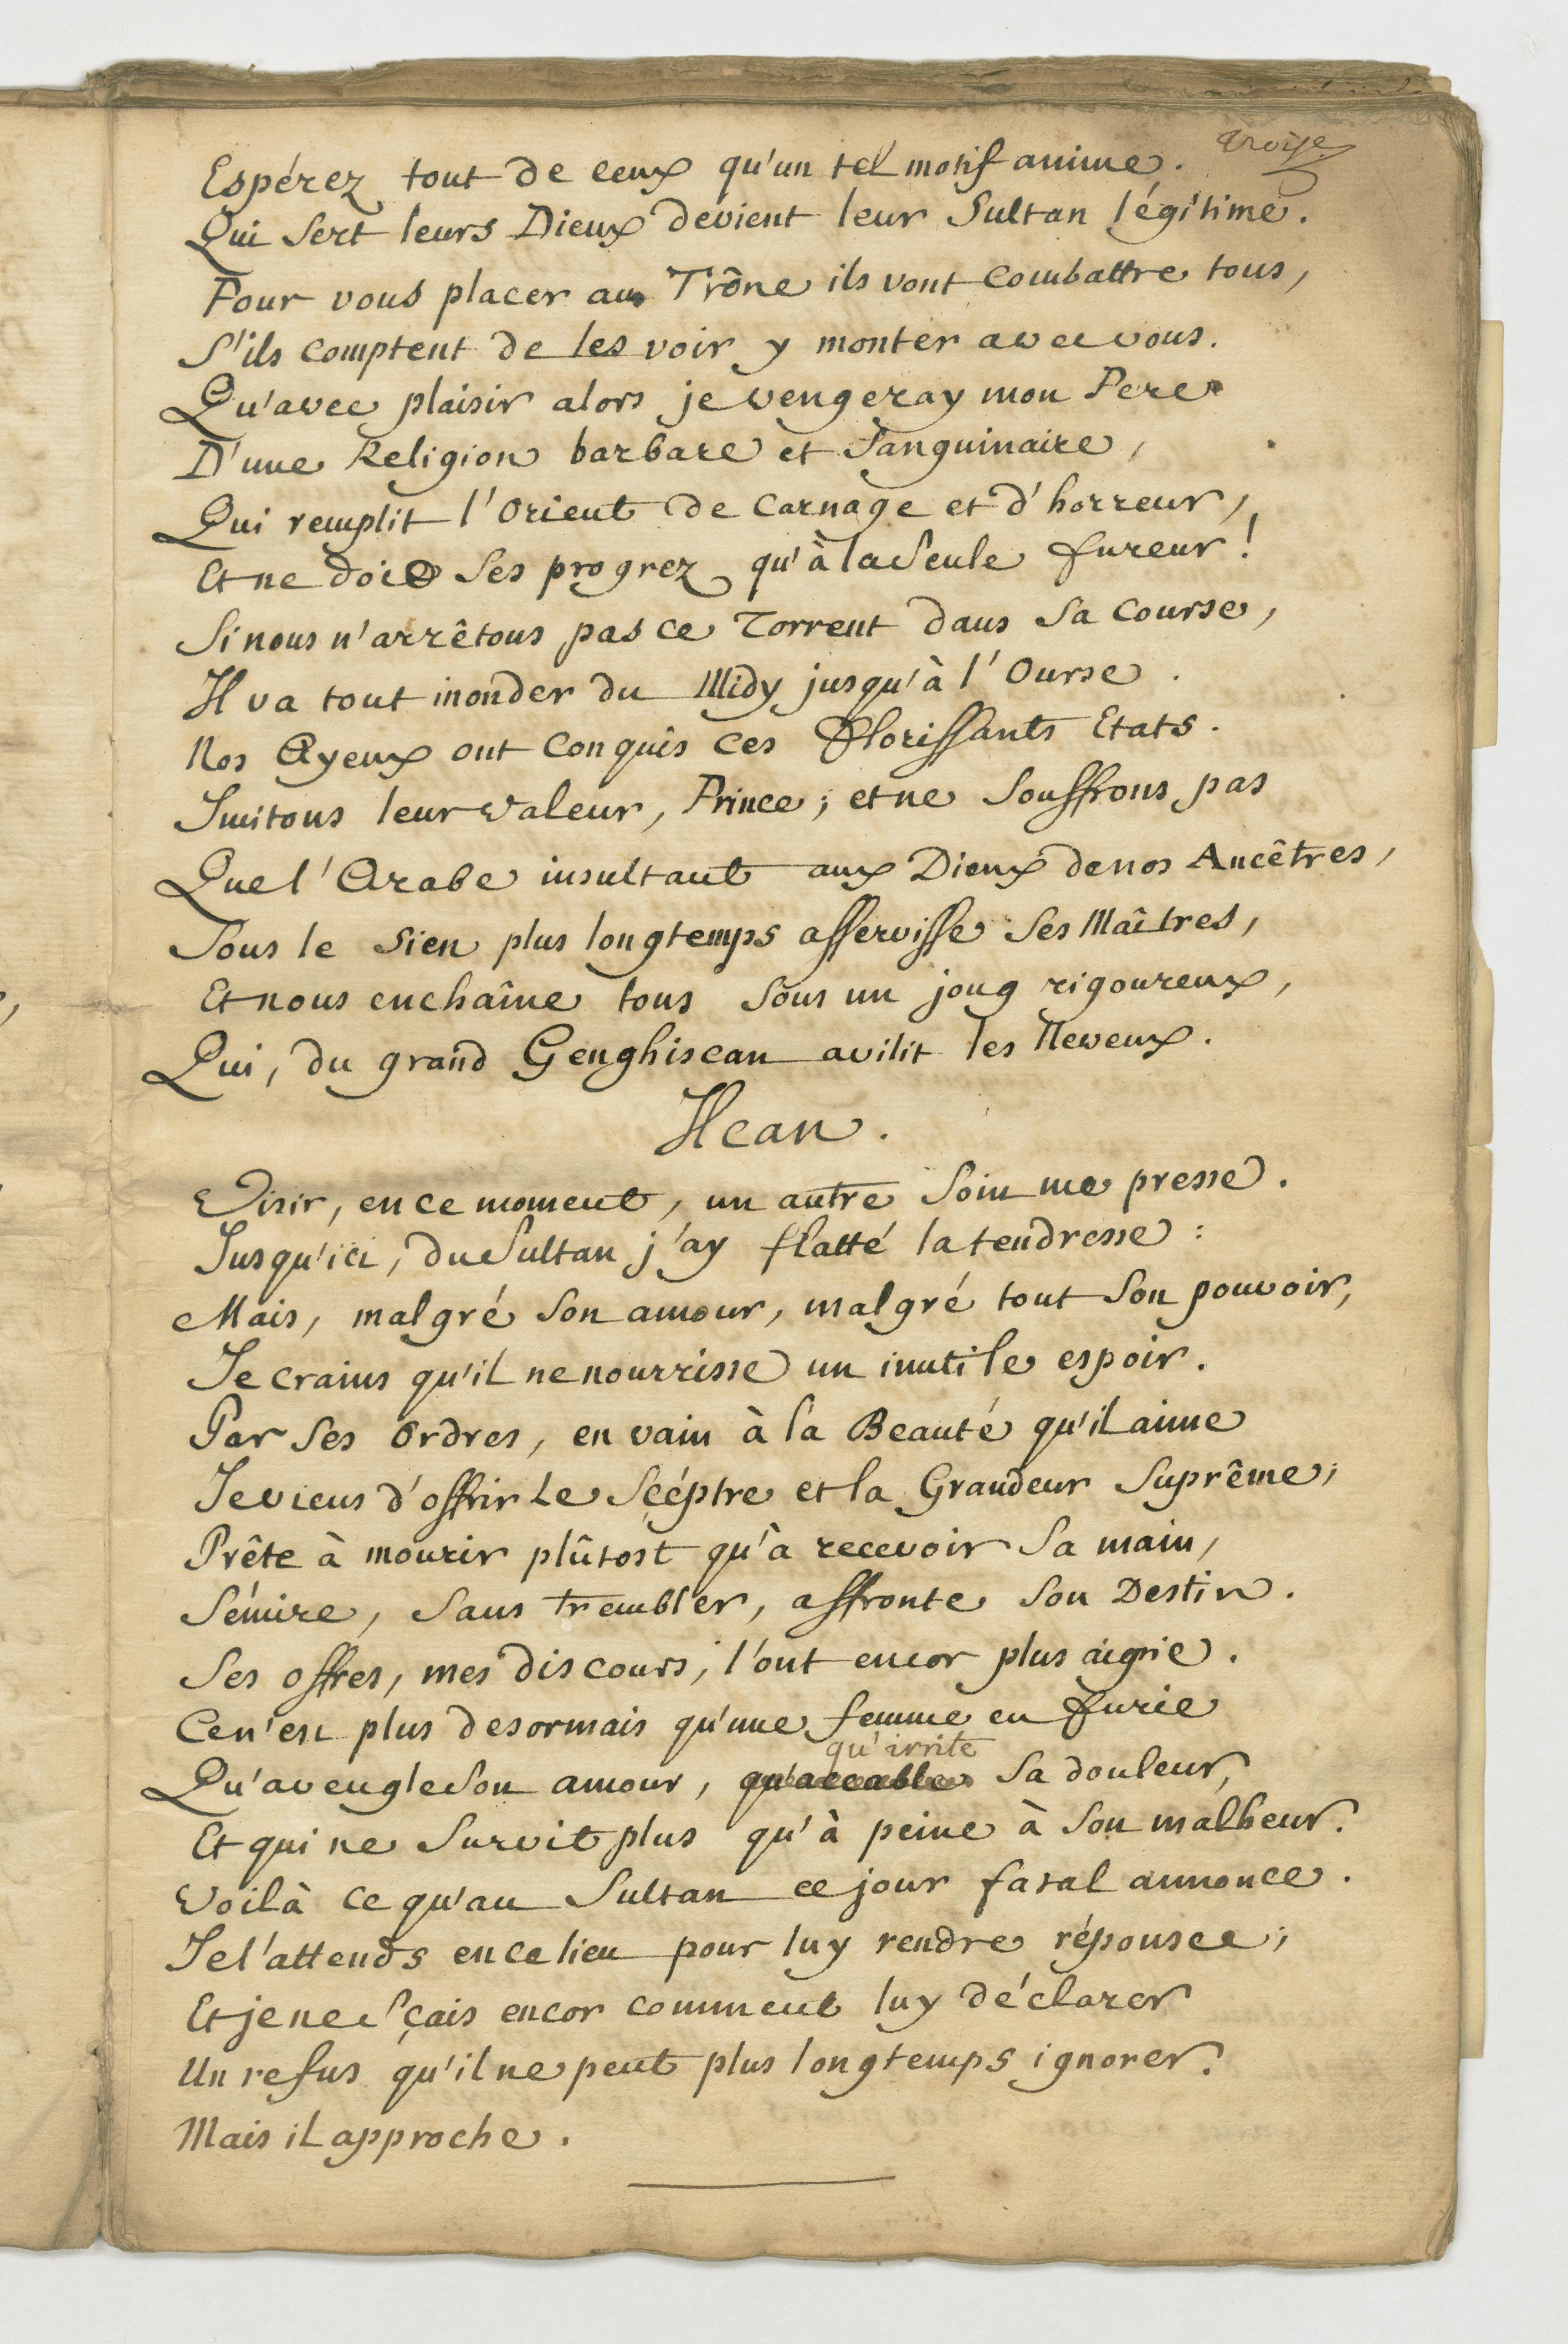 troize
Espérez tout de ceux qu'un tel motif anime.
Qui sert leurs Dieux devient leur Sultan légitime.
Pour vous placer au Trône ils vont combattre tous,
S'ils comptent de les voir y monter avec vous.
Qu'avec plaisir alors je vengeray mon Pere
D'une Religion barbare et sanguinaire,
Qui remplit l'Orient de carnage et d'horreur,
Et ne doit ses progrez qu'à la seule fureur!
Si nous n'arrêtons pas ce Torrent dans sa course,
Il va tout inonder du Midy jusqu'à l'Ourse.
Nos Ayeux ont conquis ces florissants Etats.
Imitons leur valeur, Prince; et ne souffrons pas
Que l'Arabe insultant aux Dieux de nos Ancêtres,
Sous le sien plus longtemps asservisse ses Maîtres,
Et nous enchaîne tous sous un joug rigoureux,
Qui, du grand Genghiscan avilit les Neveux.
Hcan.
Visir, en ce moment, un autre soin me presse.
Jusqu'ici, du Sultan j'ay flatté la tendresse:
Mais, malgré son amour, malgré tout son pouvoir,
Je crains qu'il ne nourrisse un inutile espoir.
Par ses ordres, en vain à la Beauté qu'il aime
Je viens d'offrir le Scéptre et la Grandeur Suprême;
Prête à mourir plûtost qu'à recevoir sa main,
Sémire, sans trembler, affronte son Destin.
Ses offres, mes discours, l'ont encor plus aigrie.
Ce n'est plus desormais qu'une femme en furie
qu'irrite
Qu'aveugle son amour, qu'accable sa douleur,
Et qui ne survit plus qu'à peine à son malheur.
Voilà ce qu'au Sultan ce jour fatal annonce.
Je l'attends en ce lieu pour luy rendre réponse;
Et je ne sçais encor comment luy déclarer
Un refus qu'il ne peut plus longtemps ignorer.
Mais il approche.